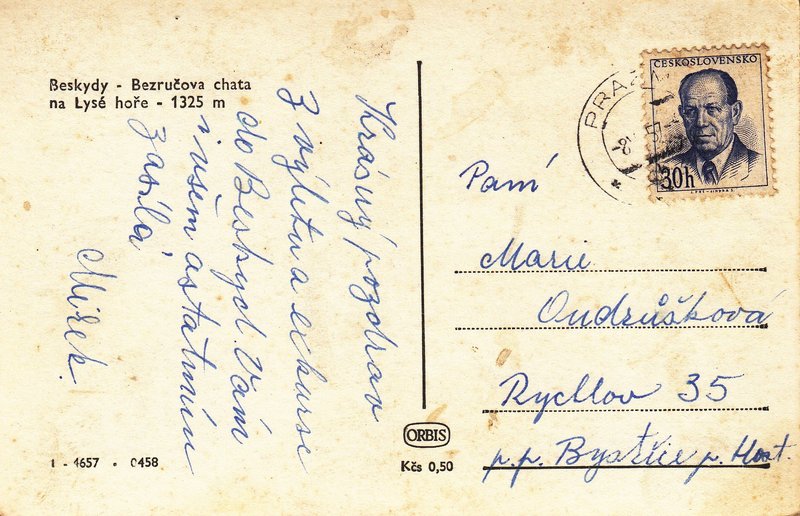 Beskydy - Bezručova chata
na Lysé hoře - 1325 m
Krásný pozdrav
z výletu a exkurse
do Beskyd. Vám
i všem ostatním
zasílá
Mirek.
1 - 4657 • 0458
ORBIS
Kčs 0,50
ČESKOSLOVENSKO
30h
PRAHA
Paní
Marie
Ondrůšková
Rychlov 35
p.p. Bystřice p. Host.